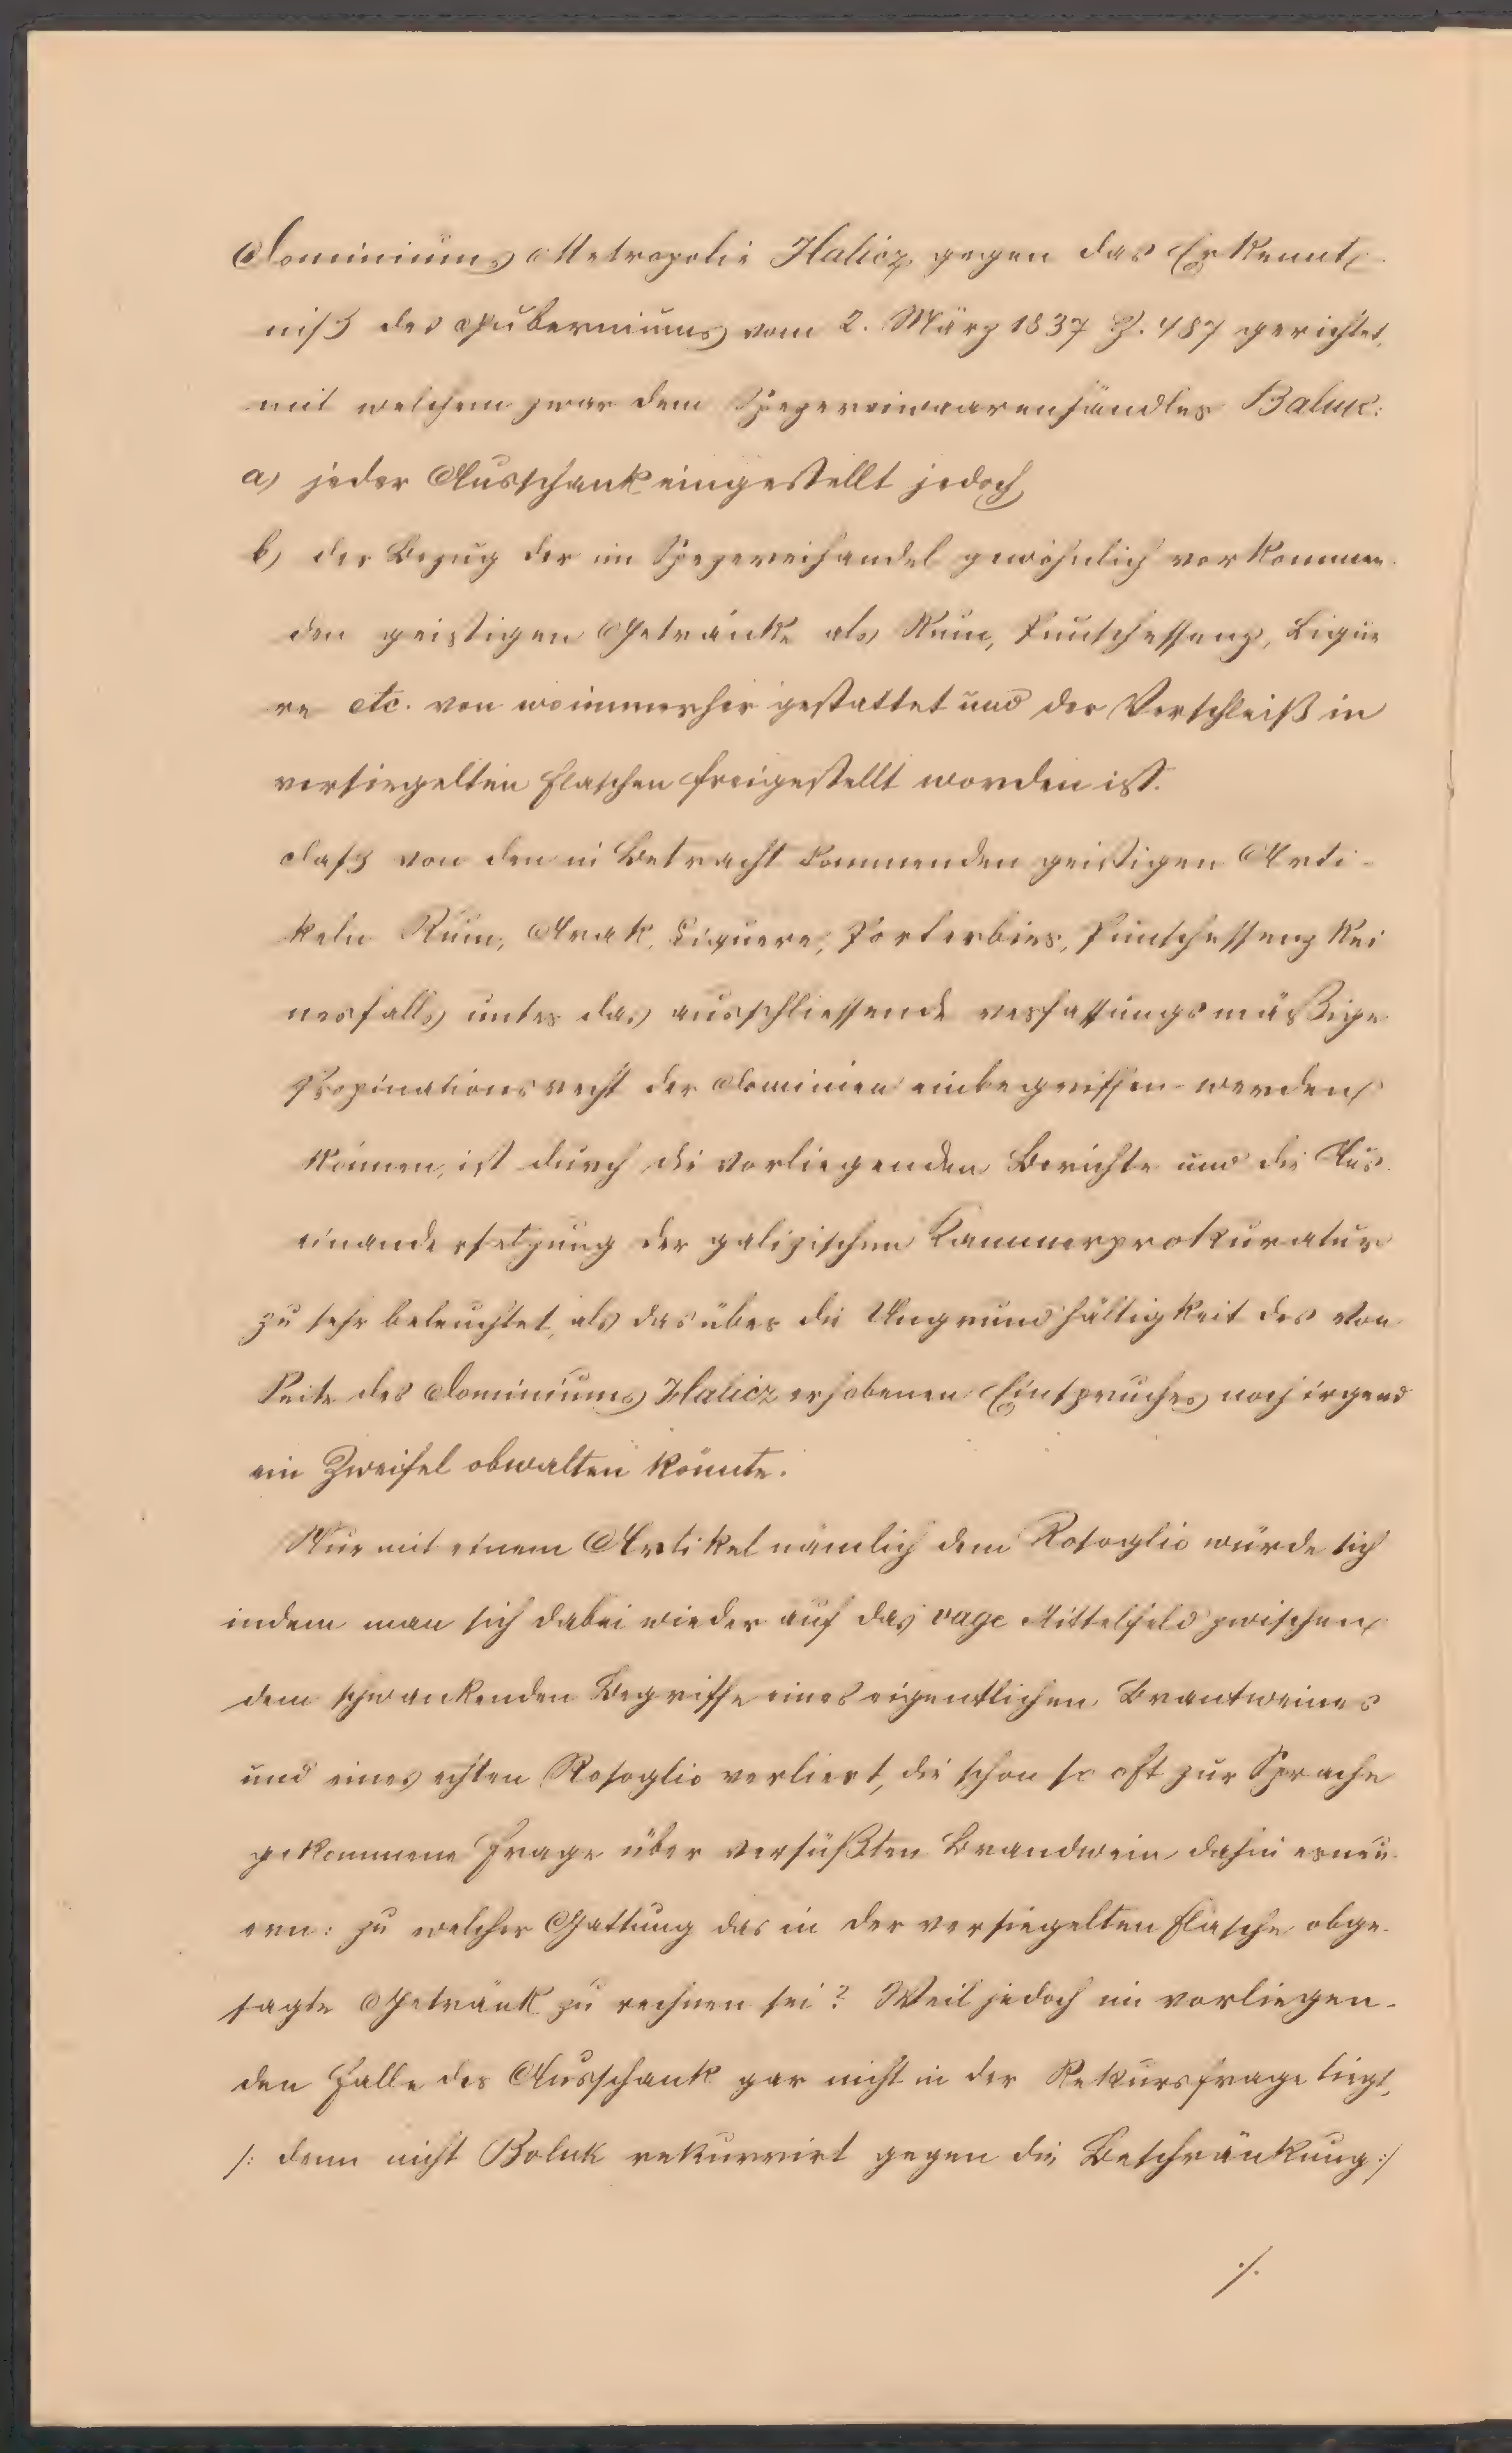 Dominiums Metropolie Halicz gegen das Erkennt-
niß des Guberniums vom 2. März 1837 Z. 487 gerichtet,
mit welchem zwar dem Spezereiwaarenhändler Baluk:
a) jeder Ausschank eingestellt jedoch
b) der Bezug der im Spezereihandel gewöhnlich vorkommen-
den geistigen Getränke als Rum, Punschessenz, Liqueu
re etc. von woimmerher gestattet und der Verschleiß in
versiegelten Flaschen freigestellt worden ist.
Daß von den in Betracht kommenden geistigen Arti-
keln Rum, Arak, Liquere, Porterbier, Punschessenz kei
nesfalls unter das ausschliessende verfassungsmäßige
Propinationsrecht der Dominien einbegriffen werden
können, ist durch die vorliegenden Berichte und die Aus-
einandersetzung der galizischen Kammerprokuratur
zu sehr beleuchtet, als das über die Ungrundhältigkeit des von
Seite des Dominiums Halicz erhobenen Einspruches noch irgend
ein Zweifel obwalten könnte.
Nur mit einem Artikel nämlich dem Rosoglio würde sich
indem man sich dabei wieder auf das vage Mittelfeld zwischen
dem schwankenden Begriffe eines eigentlichen Brantweines
und eines echten Rosoglio verliert, die schon so oft zur Sprache
gekommene Frage über versüßten Brandwein dahin erneu-
ern: zu welcher Gattung das in der versiegelten Flasche obge-
sagte Getränk zu rechnen sei? Weil jedoch im vorliegen-
den Falle der Ausschank gar nicht in der Rekursfrage liegt,
/: denn nicht Boluk rekurrirt gegen die Beschränkung :/
./.